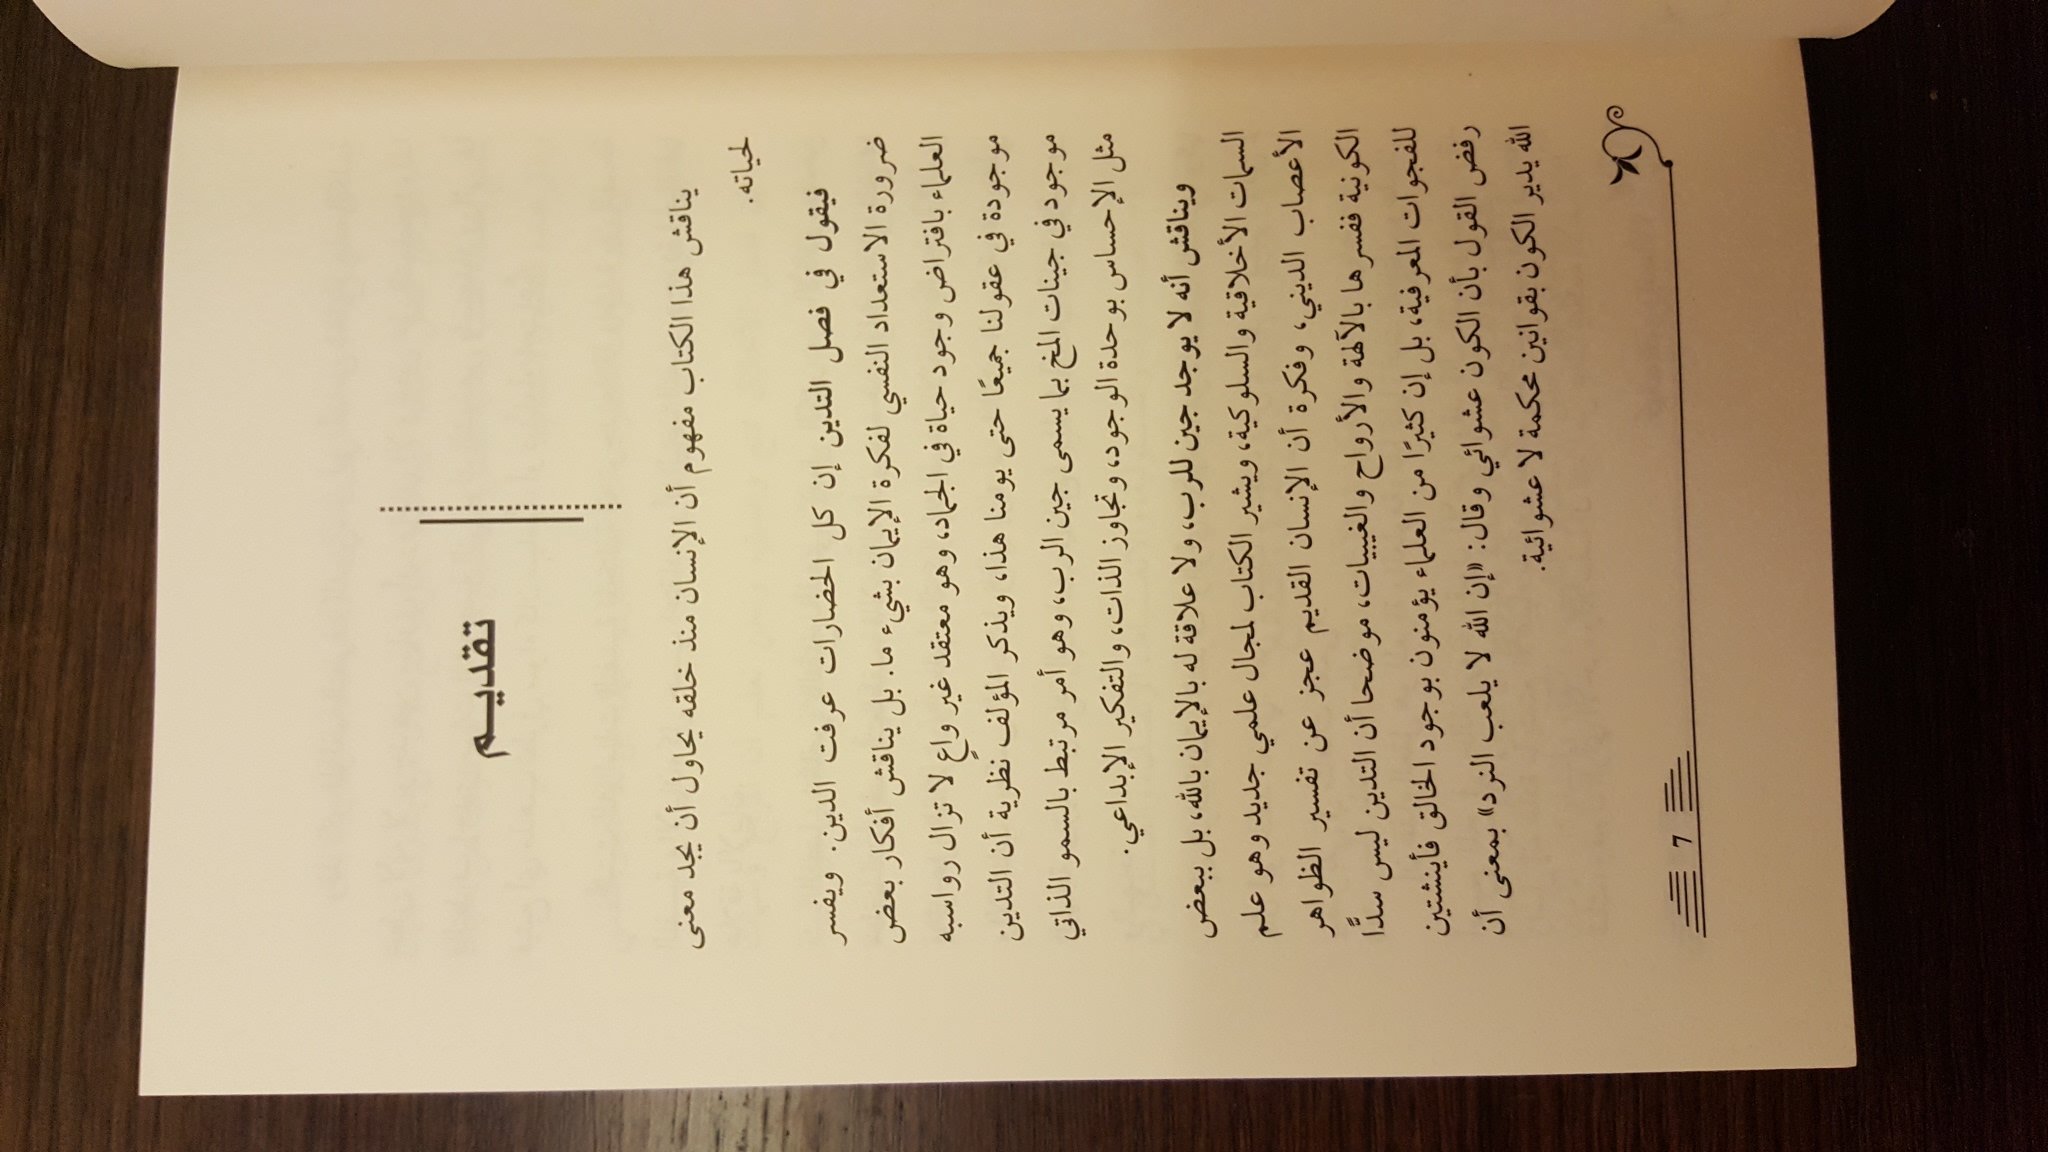 تقديم
يناقش هذا الكتاب مفهوم أن الإنسان منذ خلقه يحاول أن يجد معنى
لحياته.
فيقول في فصل التدين إن كل الحضارات عرفت الدين. ويفسر
ضرورة الاستعداد النفسي لفكرة الإيمان بشيء ما. بل يناقش أفكار بعض
العلماء بافتراض وجود حياة في الجماد، وهو معتقد غير واعٍ لا تزال رواسبه
موجودة في عقولنا جميعًا حتى يومنا هذا، ويذكر المؤلف نظرية أن التدين
موجود في جينات المخ بما يسمى جين الرب، وهو أمر مرتبط بالسمو الذاتي
مثل الإحساس بوحدة الوجود، وتجاوز الذات، والتفكير الإبداعي.
ويناقش أنه لا يوجد جين للرب، ولا علاقة له بالإيمان بالله، بل ببعض
السمات الأخلاقية والسلوكية، ويشير الكتاب لمجال علمي جديد وهو علم
الأعصاب الديني، وفكرة أن الإنسان القديم عجز عن تفسير الظواهر
الكونية ففسرها بالآلهة والأرواح والغيبيات، موضحا أن التدين ليس سدًّا
للفجوات المعرفية، بل إن كثيرًا من العلماء يؤمنون بوجود الخالق فأينشتين
رفض القول بأن الكون عشوائي وقال: «إن الله لا يلعب النرد» بمعنى أن
الله يدير الكون بقوانين محكمة لا عشوائية.
7